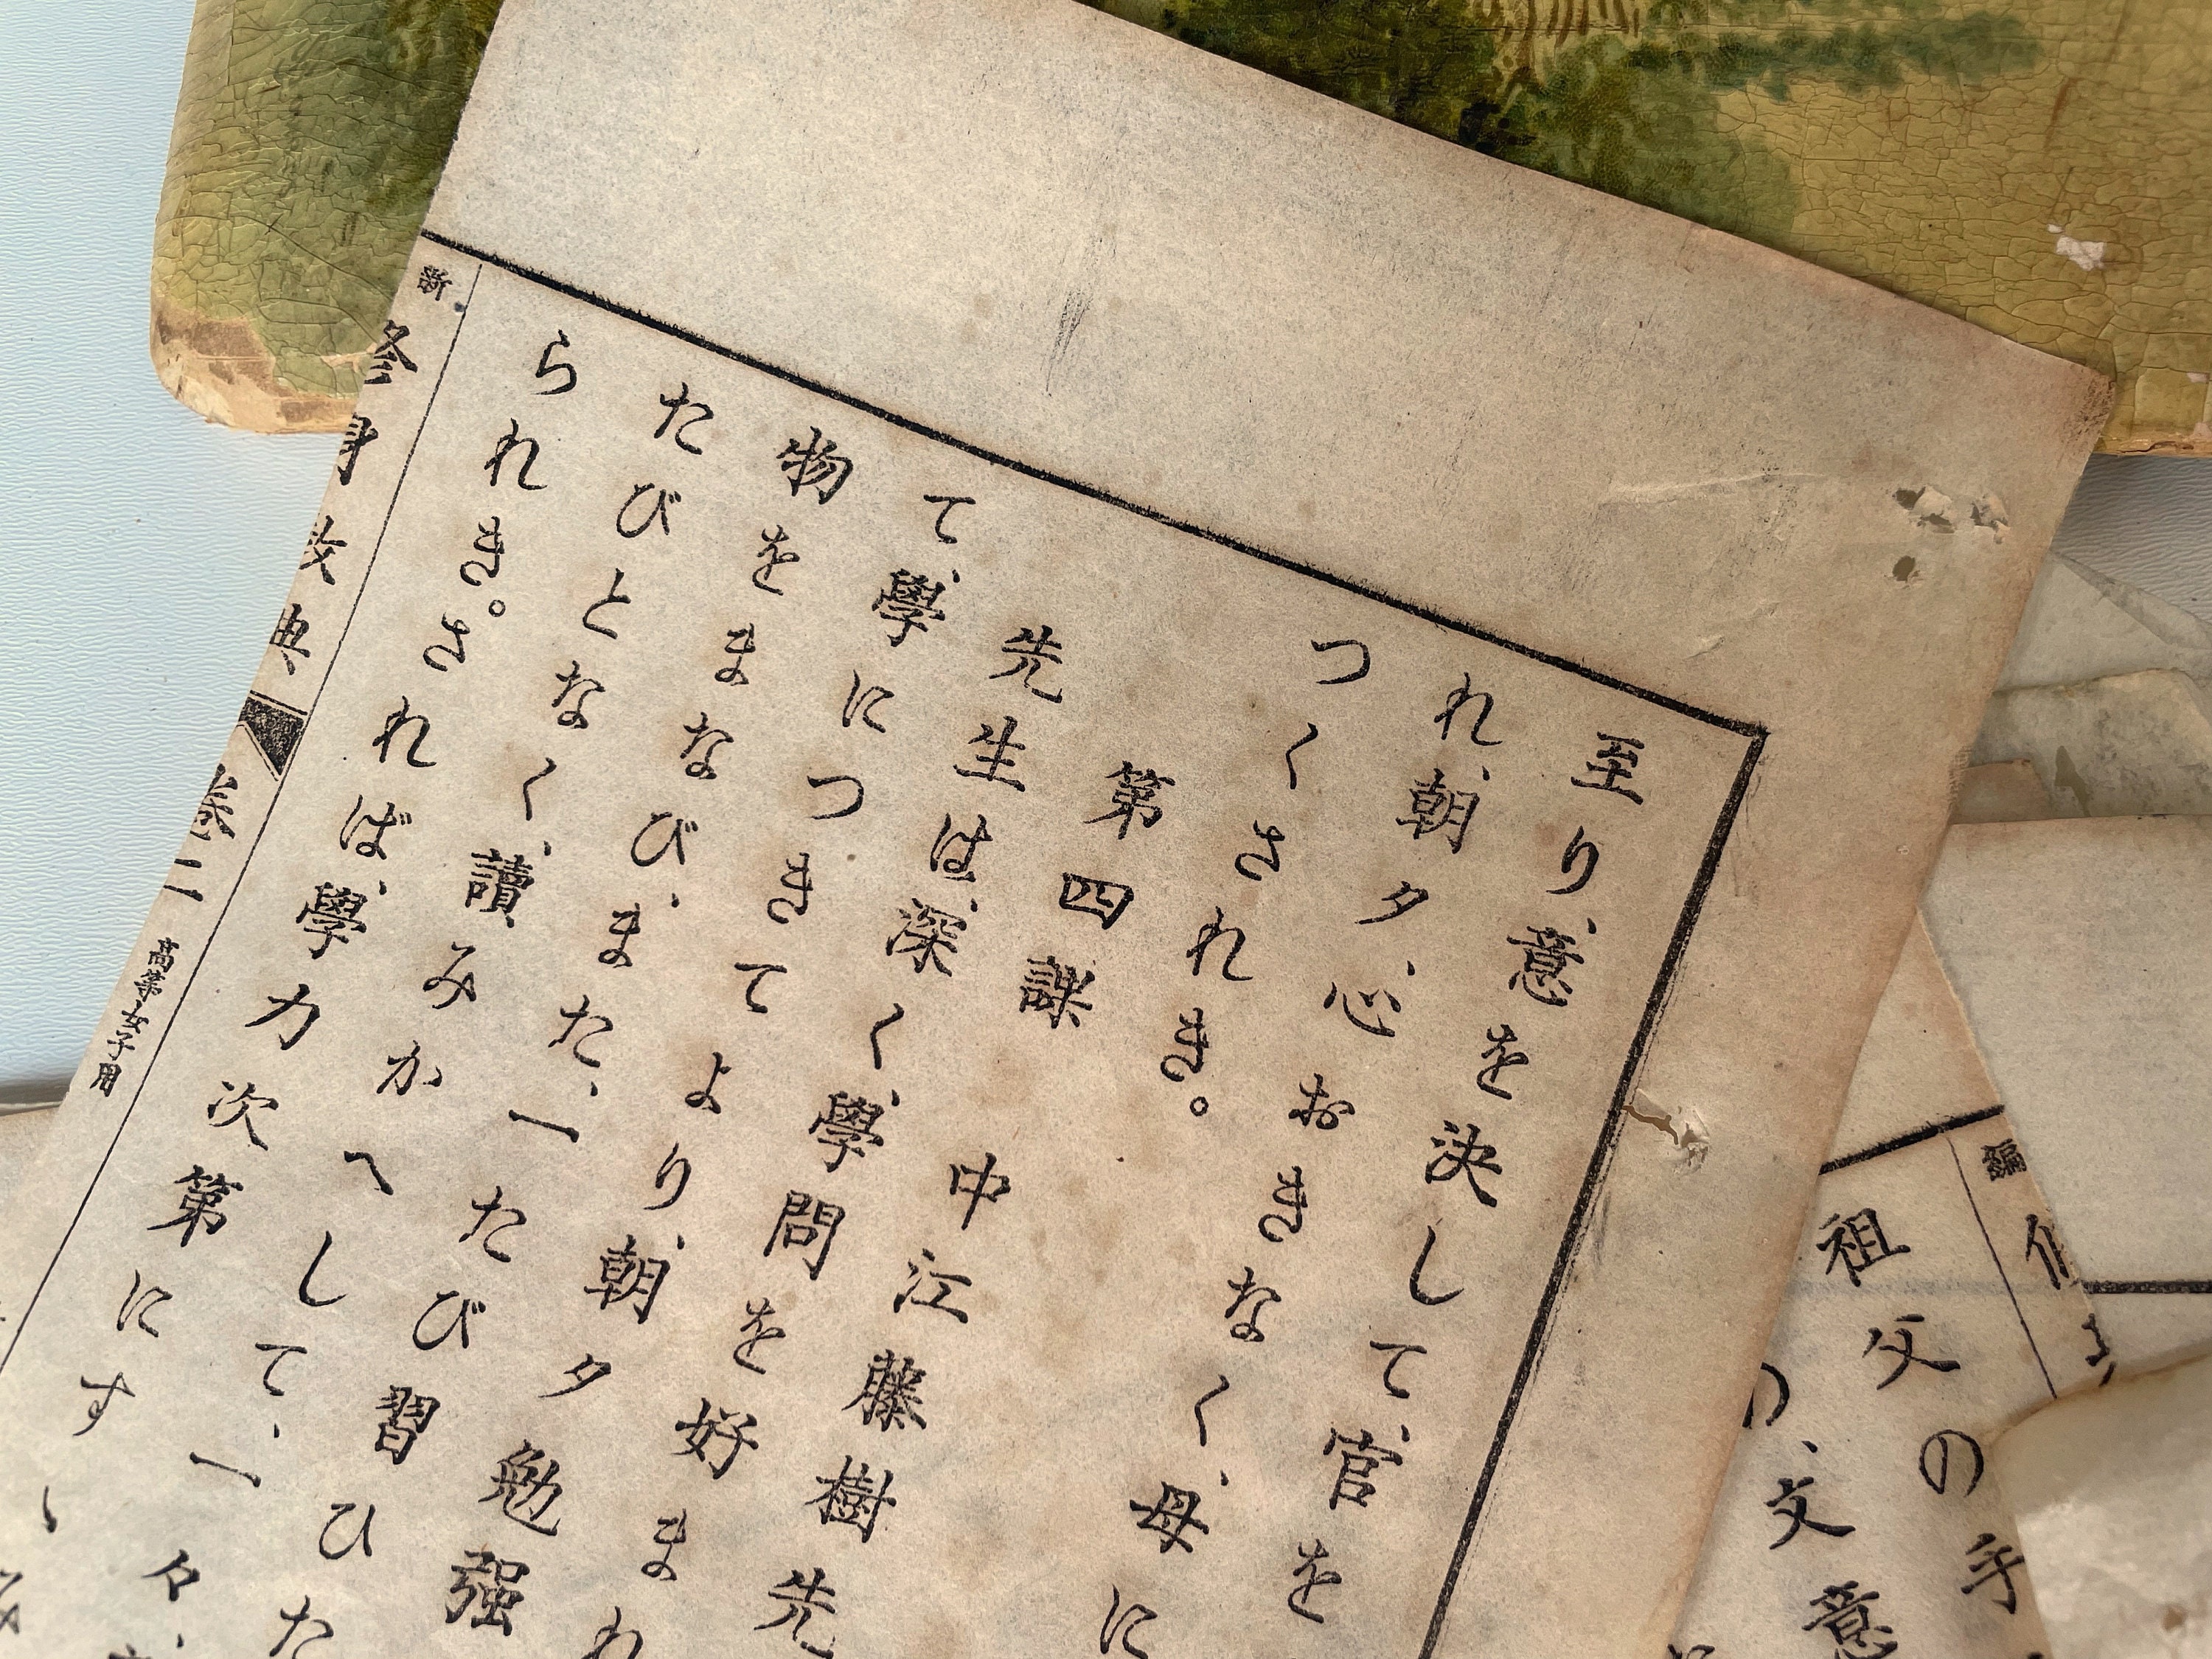 至り、意を決して、官を
れ、朝夕、心おきなく、母に
つくされき。
第四課 中江藤樹先
先生は、深く、學問を好まれ
て、學につきてより、朝夕勉强
物をまなび、また、一たび習ひた
たびとなく、讀みかへして、一々、
られき。されば、學力次第にす
新 修身教典 卷二 高等女子用
編
祖父の手
文意